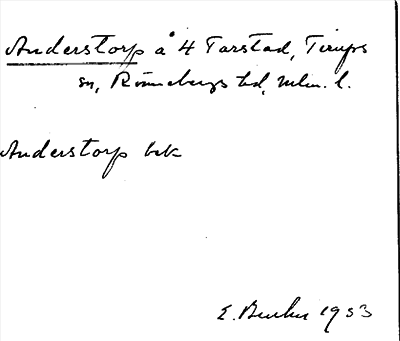 Anderstorp å 4 Tarstad, Tirups
sn, Rönnebergs hd, Mlm. l.
Anderstorp bek
E. 1953